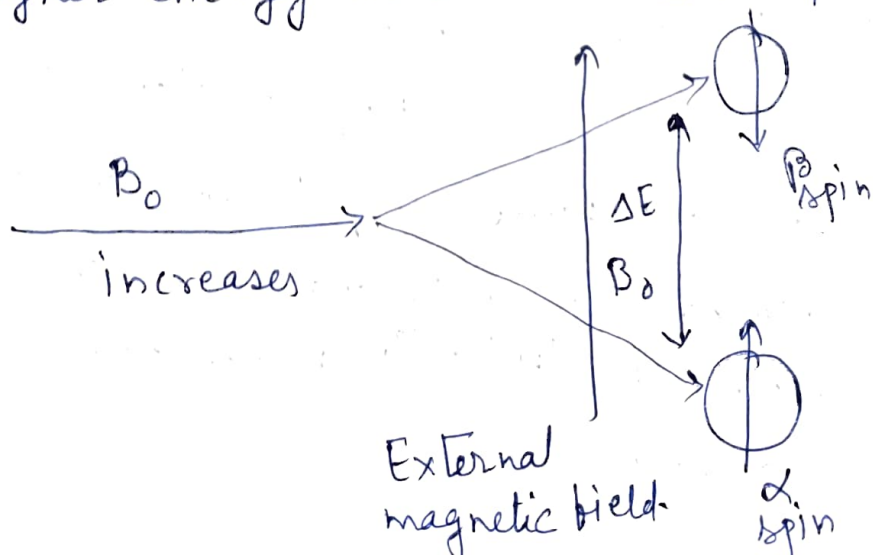 energy
B₀
increases
ΔE
B₀
β
spin
External
magnetic field.
α
spin